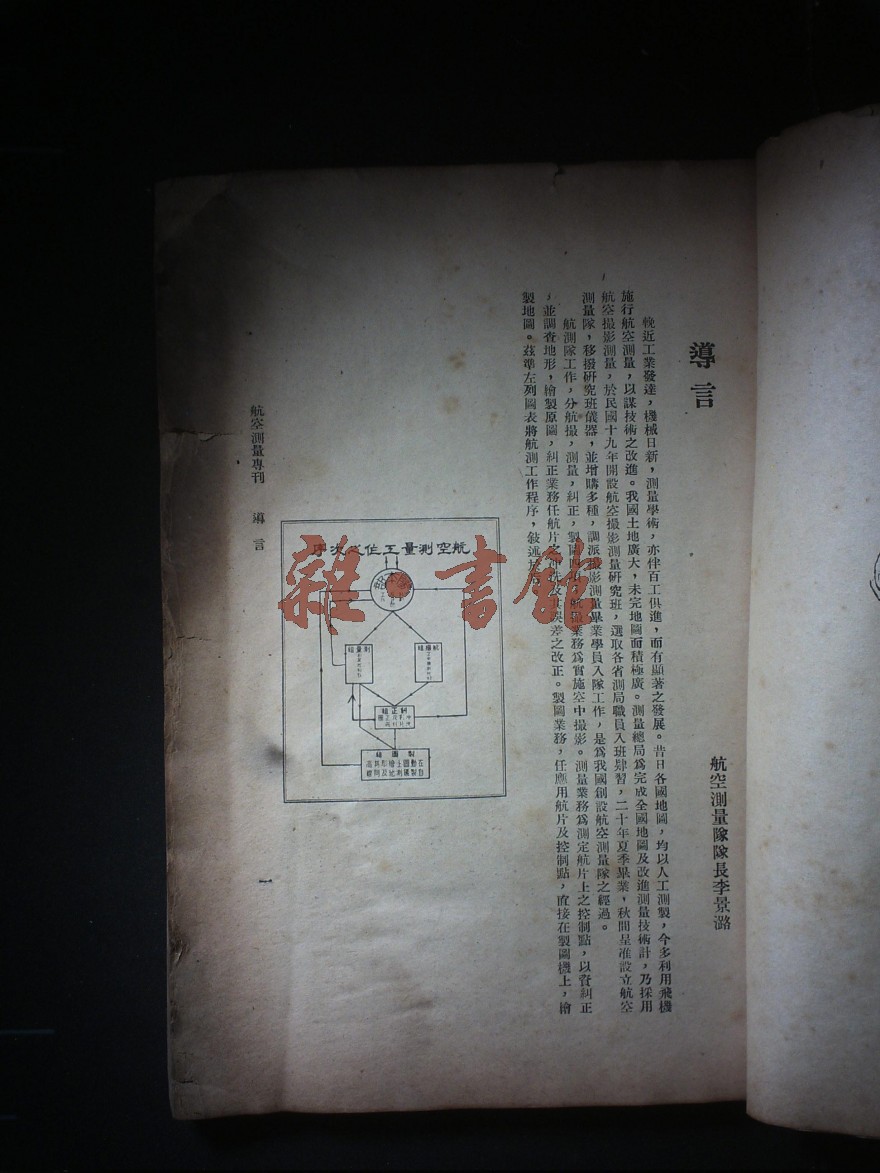 導言
航空測量隊隊長李景潞
輓近工業發達，機械日新，測量學術，亦伴百工俱進，而有顯著之發展。昔日各國地圖，均以人工測製，今多利用飛機
施行航空測量，以謀技術之改進。我國土地廣大，未完地圖面積極廣。測量總局爲完成全國地圖及改進測量技術計，乃採用
航空攝影測量，於民國十九年開設航空攝影測量研究班，選取各省測局職員入班肄習，二十年夏季畢業，秋間呈准設立航空
測量隊，移撥研究班儀器，並增購多種，調派攝影測量畢業學員入隊工作，是爲我國創設航空測量隊之經過。
航測隊工作，分航攝，測量，糾正，製圖四項。航攝業務爲實施空中撮影。測量業務爲測定航片上之控制點，以資糾正
，並調查地形，繪製原圖，糾正業務任航片之冲洗及其誤差之改正。製圖業務，任應用航片及控制點，直接在製圖機上，繪
製地圖。茲準左列圖表將航測工作程序，敍述
航空測量工作之次序
測量組
糾正組
製圖組
航空測量專刊　導言
一
雜書館